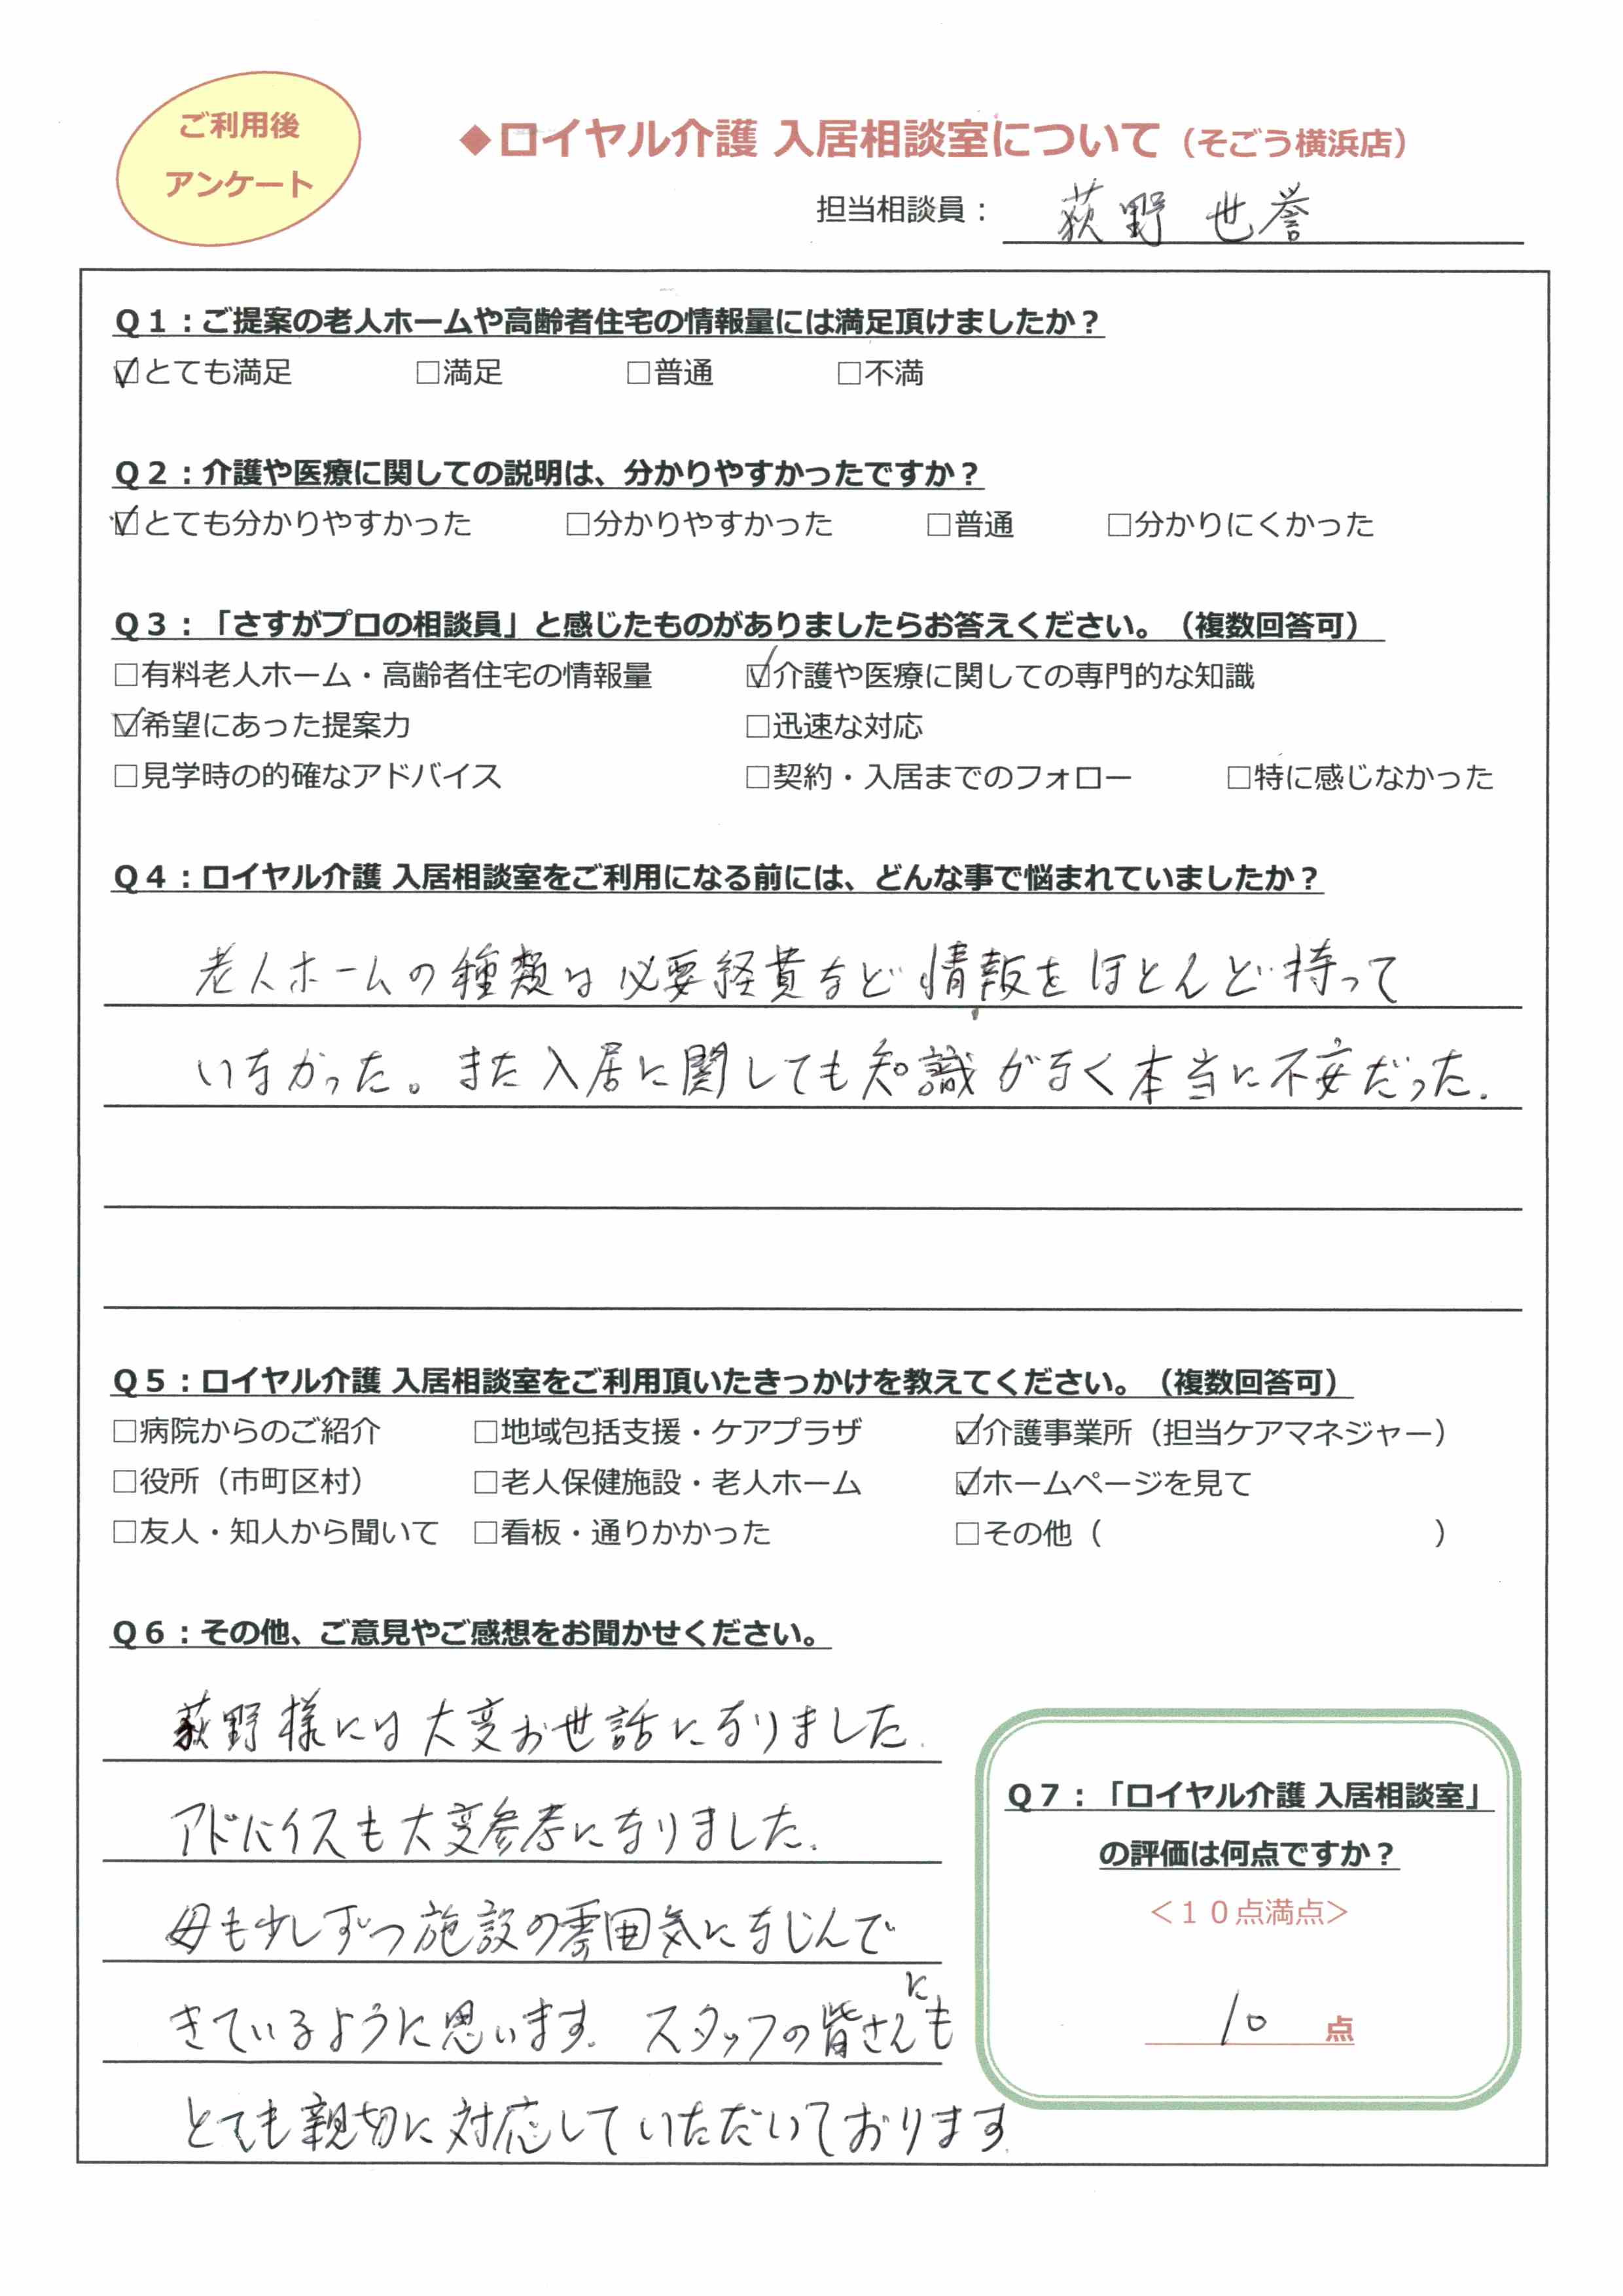 ご利用後
アンケート
◆ロイヤル介護 入居相談室について（そごう横浜店）
担当相談員： 荻野 世誉
Ｑ１：ご提案の老人ホームや高齢者住宅の情報量には満足頂けましたか？
☑とても満足 □満足 □普通 □不満
Ｑ２：介護や医療に関しての説明は、分かりやすかったですか？
☑とても分かりやすかった □分かりやすかった □普通 □分かりにくかった
Ｑ３：「さすがプロの相談員」と感じたものがありましたらお答えください。（複数回答可）
□有料老人ホーム・高齢者住宅の情報量 ☑介護や医療に関しての専門的な知識
☑希望にあった提案力 □迅速な対応
□見学時の的確なアドバイス □契約・入居までのフォロー □特に感じなかった
Ｑ４：ロイヤル介護 入居相談室をご利用になる前には、どんな事で悩まれていましたか？
老人ホームの種類は必要経費など情報をほとんど持って
いなかった。また入居に関しても知識がなく本当に不安だった.
Ｑ５：ロイヤル介護 入居相談室をご利用頂いたきっかけを教えてください。（複数回答可）
□病院からのご紹介 □地域包括支援・ケアプラザ ☑介護事業所（担当ケアマネジャー）
□役所（市町区村） □老人保健施設・老人ホーム ☑ホームページを見て
□友人・知人から聞いて □看板・通りかかった □その他（ ）
Ｑ６：その他、ご意見やご感想をお聞かせください。
荻野様には大変お世話になりました.
アドバイスも大変参考になりました.
母も少しずつ施設の雰囲気になじんで
きているように思います. スタッフの皆さんにも
とても親切に対応していただいております.
Ｑ７：「ロイヤル介護 入居相談室」
の評価は何点ですか？
＜１０点満点＞
10 点